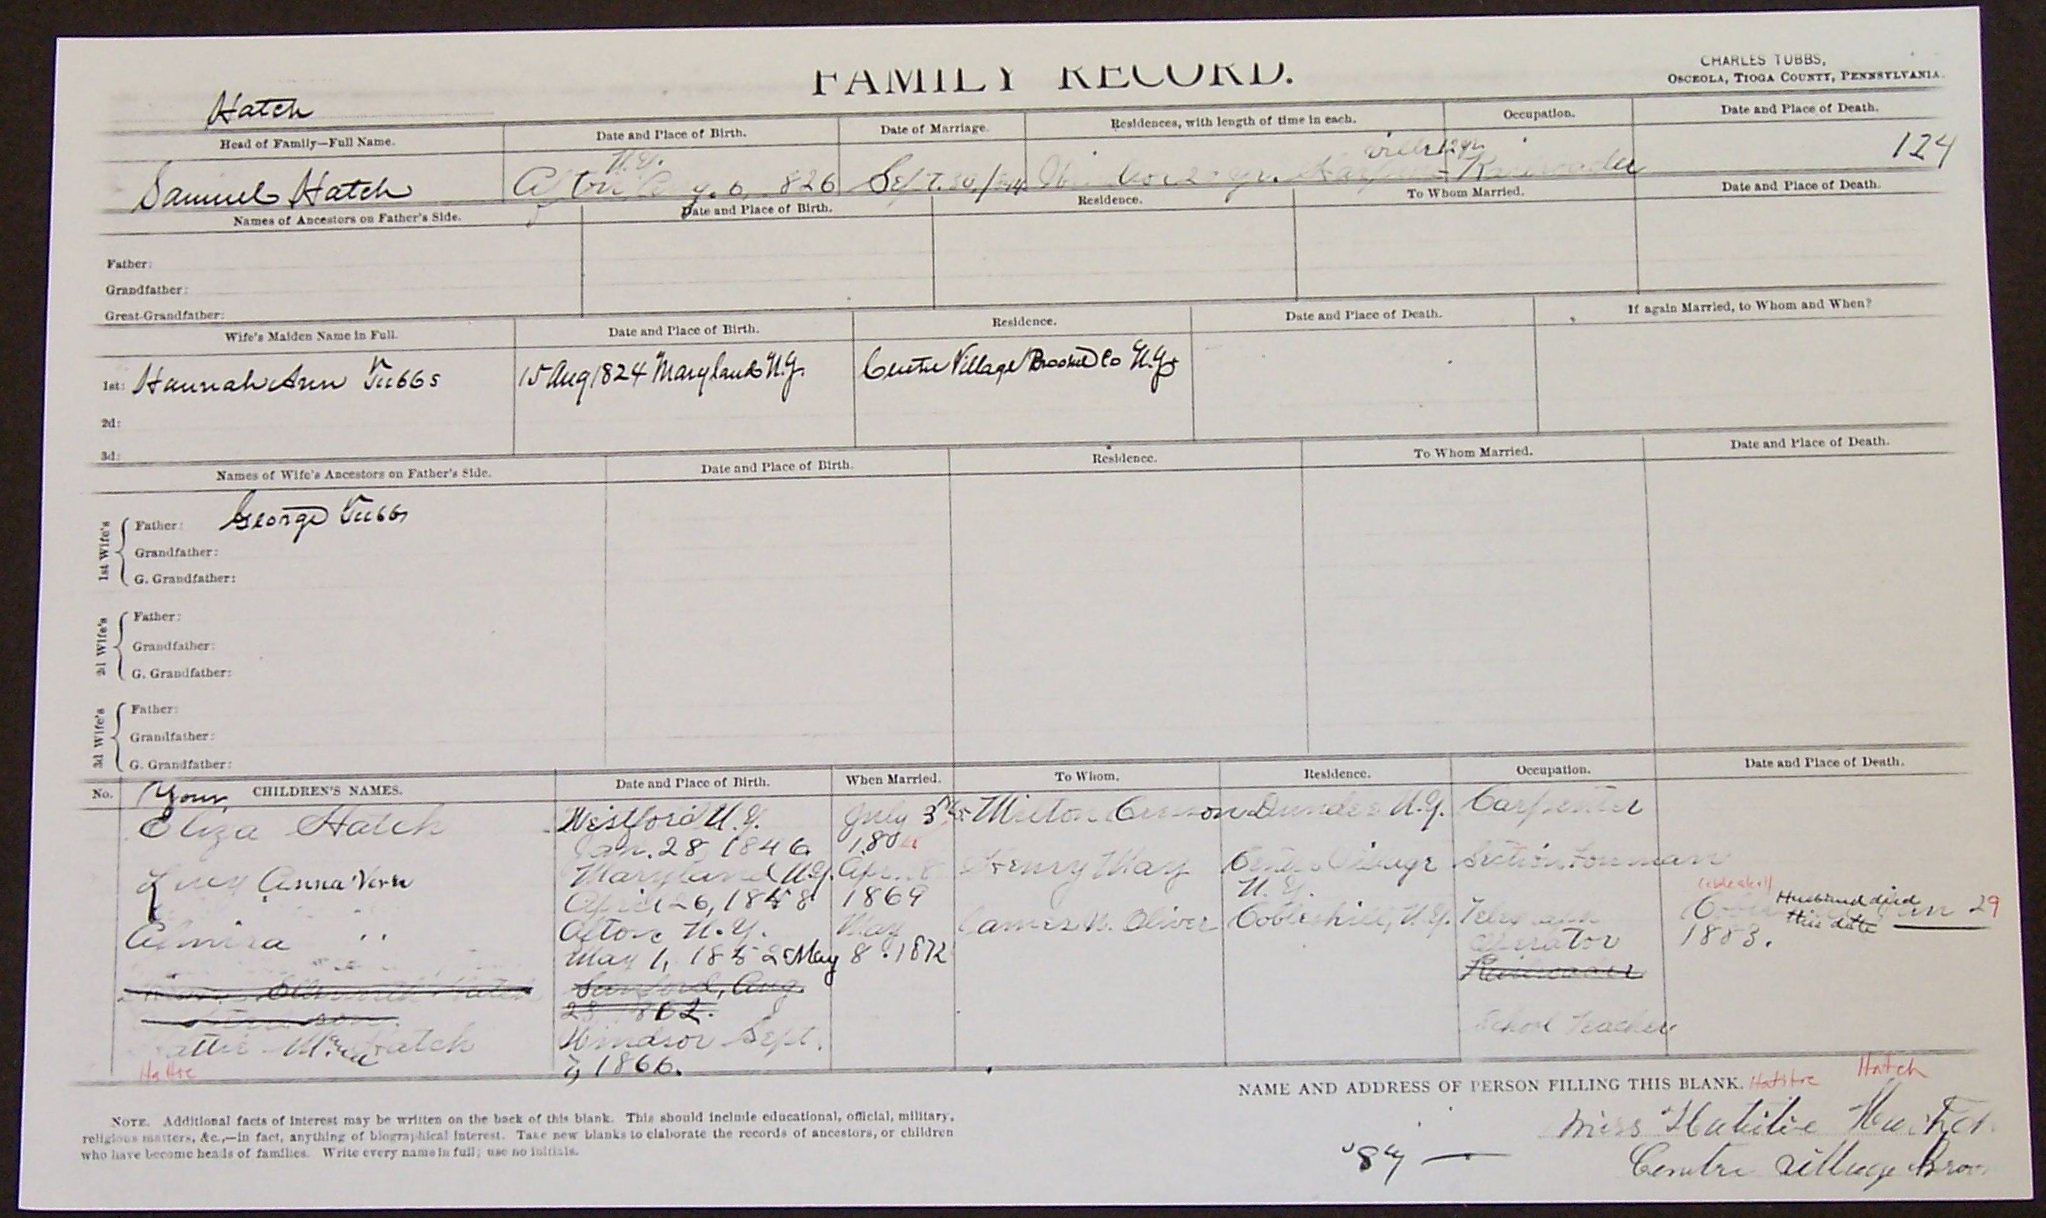 FAMILY RECORD.
CHARLES TUBBS,
OSCEOLA, TIOGA COUNTY, PENNSYLVANIA.
Hatch
Head of Family—Full Name. Date and Place of Birth. Date of Marriage. Residences, with length of time in each. Occupation. Date and Place of Death.
N.Y. 124
Samuel Hatch Afton 6 826 Sept. 30/ yr. Railroader
Names of Ancestors on Father's Side. Date and Place of Birth. Residence. To Whom Married. Date and Place of Death.
Father:
Grandfather:
Great-Grandfather:
Wife's Maiden Name in Full. Date and Place of Birth. Residence. Date and Place of Death. If again Married, to Whom and When?
1st: Hannah Ann Tubbs 15 Aug 1824 Maryland N.Y. Centre Village Broome Co N.Y.
2d:
3d:
Names of Wife's Ancestors on Father's Side. Date and Place of Birth. Residence. To Whom Married. Date and Place of Death.
1st Wife's
Father: George Tubbs
Grandfather:
G. Grandfather:
2d Wife's
Father:
Grandfather:
G. Grandfather:
3d Wife's
Father:
Grandfather:
G. Grandfather:
No. CHILDREN'S NAMES. Date and Place of Birth. When Married. To Whom. Residence. Occupation. Date and Place of Death.
Eliza Hatch Westford N.Y. July 3 Milton Dundee N.Y. Carpenter
Jan. 28, 1846
Lucy Anna Maryland N.Y. Apr. Henry May Centre Village Section Foreman
April 26, 1848 1869 N.Y.
Almira " Afton N.Y. May James N. Oliver Cobleskill, N.Y. Cobleskill Husband died this date 29
May 1, 1852 May 8. 1872 operator 1883.
Sanford, Aug. Railroader
28 862.
attie Hatch Windsor Sept. School Teacher
Hattie 9, 1866.
NAME AND ADDRESS OF PERSON FILLING THIS BLANK.
Hatch
Miss
'84 — Centre Village Broo
NOTE. Additional facts of interest may be written on the back of this blank. This should include educational, official, military,
religious matters, &c.,—in fact, anything of biographical interest. Take new blanks to elaborate the records of ancestors, or children
who have become heads of families. Write every name in full; use no initials.